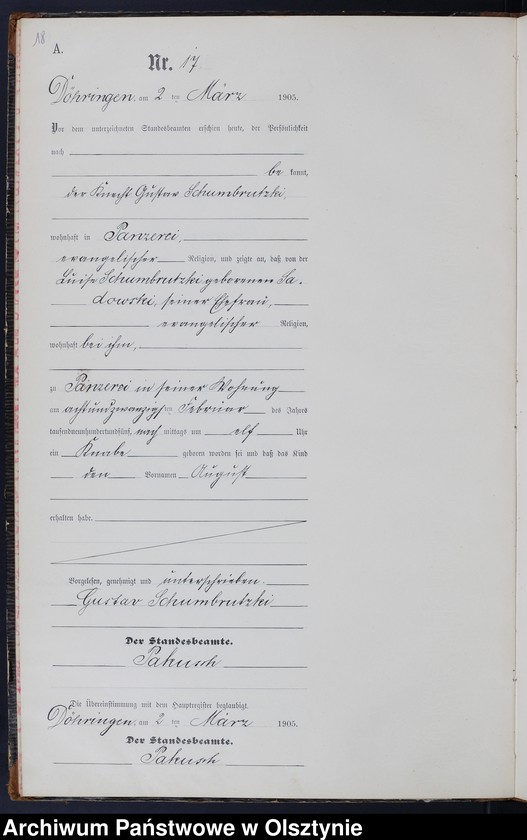 18
A.
Nr. 17
Döhringen, am 2 ten März 1905.
Vor dem unterzeichneten Standesbeamten erschien heute, der Persönlichkeit
nach
be kannt,
der Knecht Gustav Schumbrutzki,
wohnhaft in Panzerei,
evangelischer Religion, und zeigte an, daß von der
Luise Schumbrutzki geborenen Sa-
dowski, seiner Ehefrau,
evangelischer Religion,
wohnhaft bei ihm,
zu Panzerei in seiner Wohnung
am achtundzwanzigsten Februar des Jahres
tausendneunhundertundfünf, nach mittags um elf Uhr
ein Knabe geboren worden sei und daß das Kind
den Vornamen August
erhalten habe.
Vorgelesen, genehmigt und unterschrieben.
Gustav Schumbrutzki
Der Standesbeamte.
Pakusch
Die Übereinstimmung mit dem Hauptregister beglaubigt.
Döhringen, am 2 ten März 1905.
Der Standesbeamte.
Pakusch
Archiwum Państwowe w Olsztynie